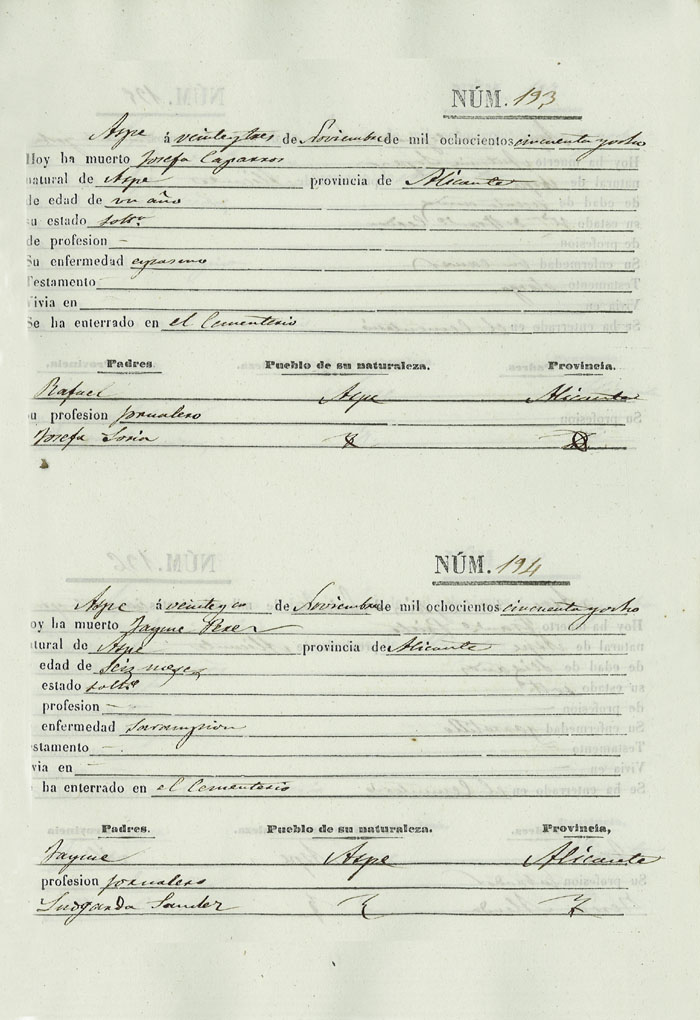 NÚM. 193
Aspe á veinteytres de Noviembre de mil ochocientos cincuenta yocho
Hoy ha muerto Josefa Caparros
natural de Aspe provincia de Alicante
de edad de un año
su estado soltª
de profesion —
Su enfermedad
Testamento
Vivia en
Se ha enterrado en el Cementerio
Padres. Pueblo de su naturaleza. Provincia.
Rafael Aspe Alicante
su profesion jornalero
Josefa Soria
NÚM. 194
Aspe á de Noviembre de mil ochocientos cincuenta yocho
oy ha muerto Jayme Perez
atural de Aspe provincia de Alicante
edad de seis meses
estado soltº
profesion —
enfermedad Sarampion
estamento —
via en —
ha enterrado en el Cementerio
Padres. Pueblo de su naturaleza. Provincia,
Jayme Aspe Alicante
profesion jornalero